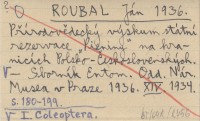 O ROUBAL Ján 1936.
Přírodvědecký výskum státní
reservace "Pieniny" na hra-
nicích Polsko-Československých.
V – Sborník Entom. Odd. Nár.
Musea v Praze 1936. XIV 1934.
s. 180-199.
V – I. Coleoptera.